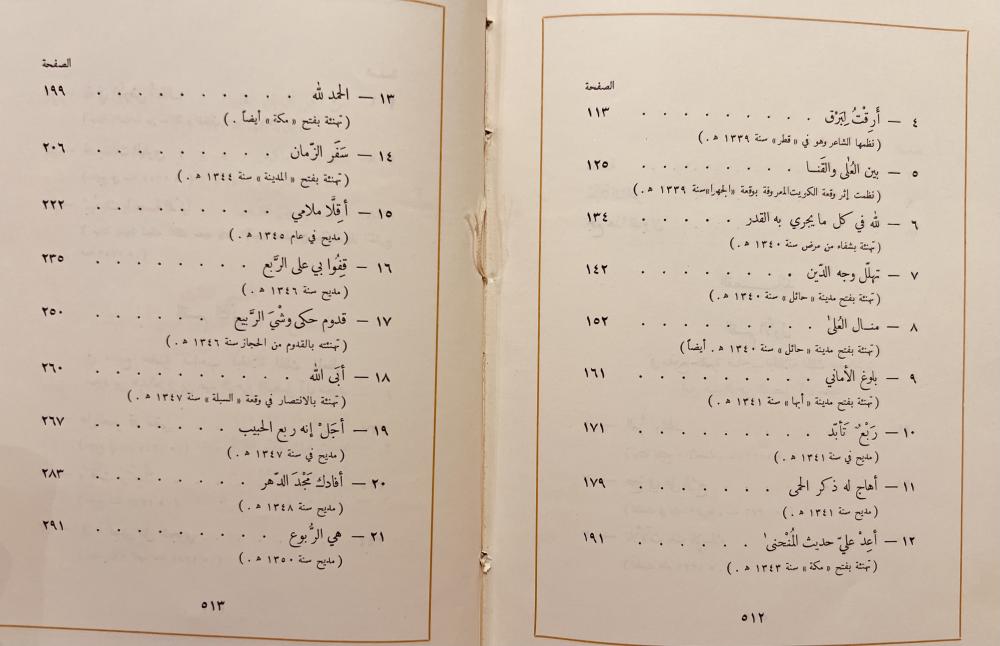 الصفحة
٤ — أَرِقْتُ لِبَرْق . . . . . . . . . ١١٣
( نظمها الشاعر وهو في « قطر » سنة ١٣٣٩ ه . )
٥ — بين العُلى والقَنا . . . . . . . . ١٢٥
( نظمت إثر وقعة الكويت المعروفة بوقعة « الجهرا » سنة ١٣٣٩ ه . )
٦ — لله في كل ما يجري به القدر . . . . . ١٣٤
( تهنئة بشفاء من مرض سنة ١٣٤٠ ه . )
٧ — تهلّل وجه الدّين . . . . . . . . ١٤٢
( تهنئة بفتح مدينة « حائل » سنة ١٣٤٠ ه . )
٨ — منال العُلىٰ . . . . . . . . . ١٥٢
( تهنئة بفتح مدينة « حائل » سنة ١٣٤٠ ه . أيضاً )
٩ — بلوغ الأماني . . . . . . . . . ١٦١
( تهنئة بفتح مدينة « أبها » سنة ١٣٤١ ه . )
١٠ — رَبْعٌ تَأبّد . . . . . . . . . ١٧١
( مديح في سنة ١٣٤١ ه . )
١١ — أهاج له ذكر الحمى . . . . . . . ١٧٩
( مديح سنة ١٣٤١ ه . )
١٢ — أعِدْ عليّ حديث المُنْحنىٰ . . . . . . ١٩١
( تهنئة بفتح « مكة » سنة ١٣٤٣ ه . )
٥١٢
الصفحة
١٣ — الحمد لله . . . . . . . . . . ١٩٩
( تهنئة بفتح « مكة » أيضاً . )
١٤ — سَفَر الزّمان . . . . . . . . . ٢٠٦
( تهنئة بفتح « المدينة » سنة ١٣٤٤ ه . )
١٥ — أقِلَّا ملامي . . . . . . . . . ٢٢٢
( مديح في عام ١٣٤٥ ه . )
١٦ — قِفُوا بي على الرَّبع . . . . . . . . ٢٣٥
( مديح سنة ١٣٤٦ ه . )
١٧ — قدوم حكى وشْيَ الرَّبيع . . . . . . ٢٥٠
( تهنئته بالقدوم من الحجاز سنة ١٣٤٦ ه . )
١٨ — أبَى الله . . . . . . . . . . ٢٦٠
( تهنئة بالانتصار في وقعة « السبلة » سنة ١٣٤٧ ه . )
١٩ — أجَلْ إنه ربع الحبيب . . . . . . . ٢٦٧
( مديح في سنة ١٣٤٧ ه . )
٢٠ — أفادك مَجْدَ الدّهر . . . . . . . . ٢٨٣
( مديح سنة ١٣٤٨ ه . )
٢١ — هي الرُّبوع . . . . . . . . . ٢٩١
( مديح سنة ١٣٥٠ ه . )
٥١٣